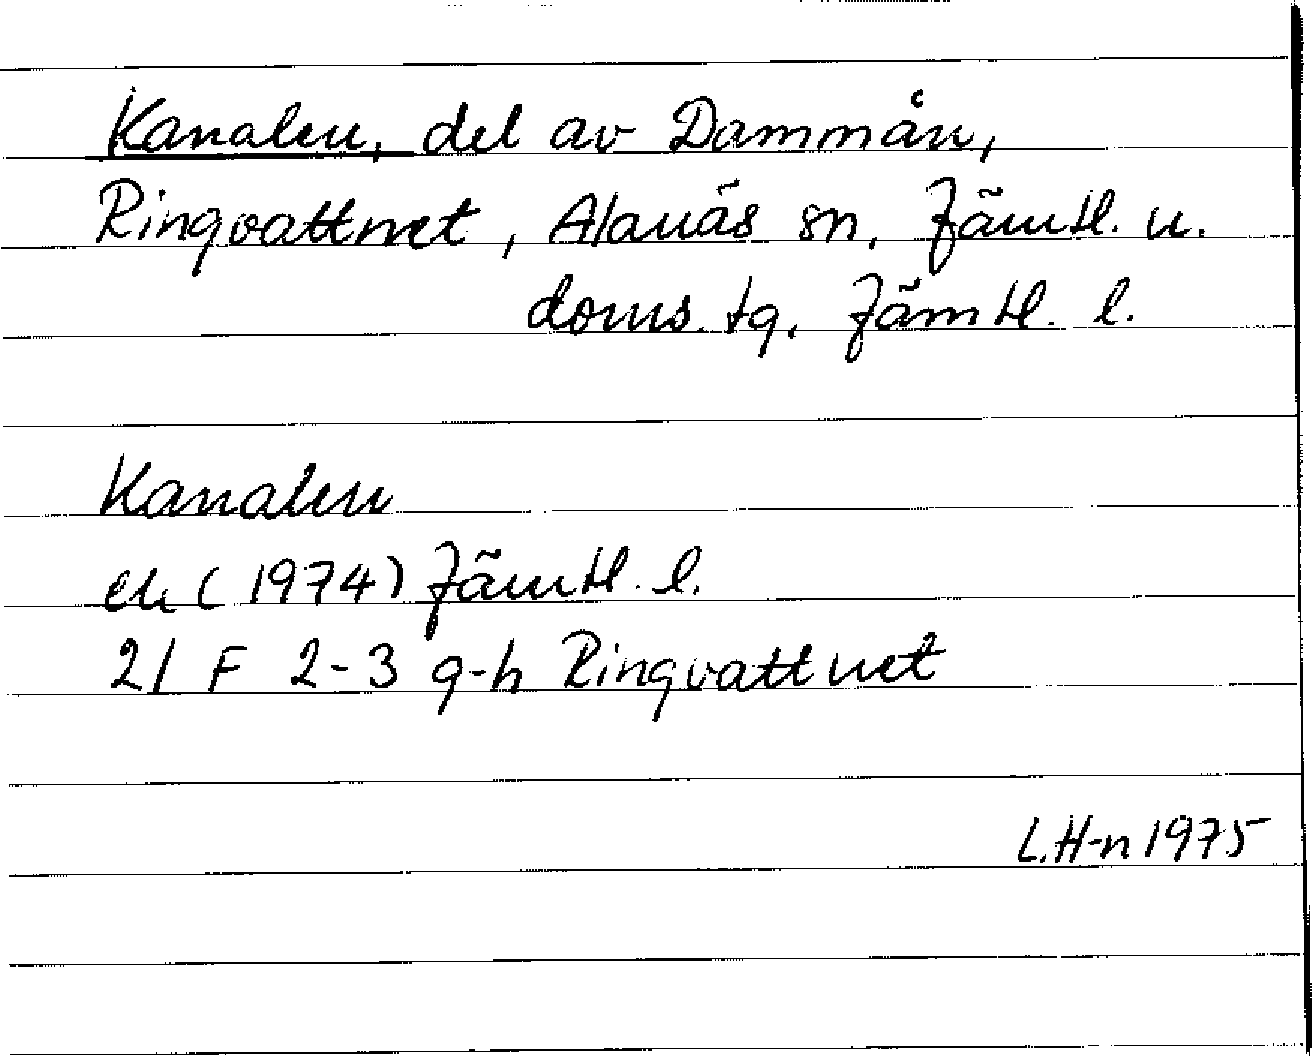 Kanalen, del av Dammån,
Ringvattnet, Alanäs sn, Jämtl. n.
doms. tg, Jämtl. l.
Kanalen
ek (1974) Jämtl. l.
21 F 2-3 g-h Ringvattnet
L.H-n 1975